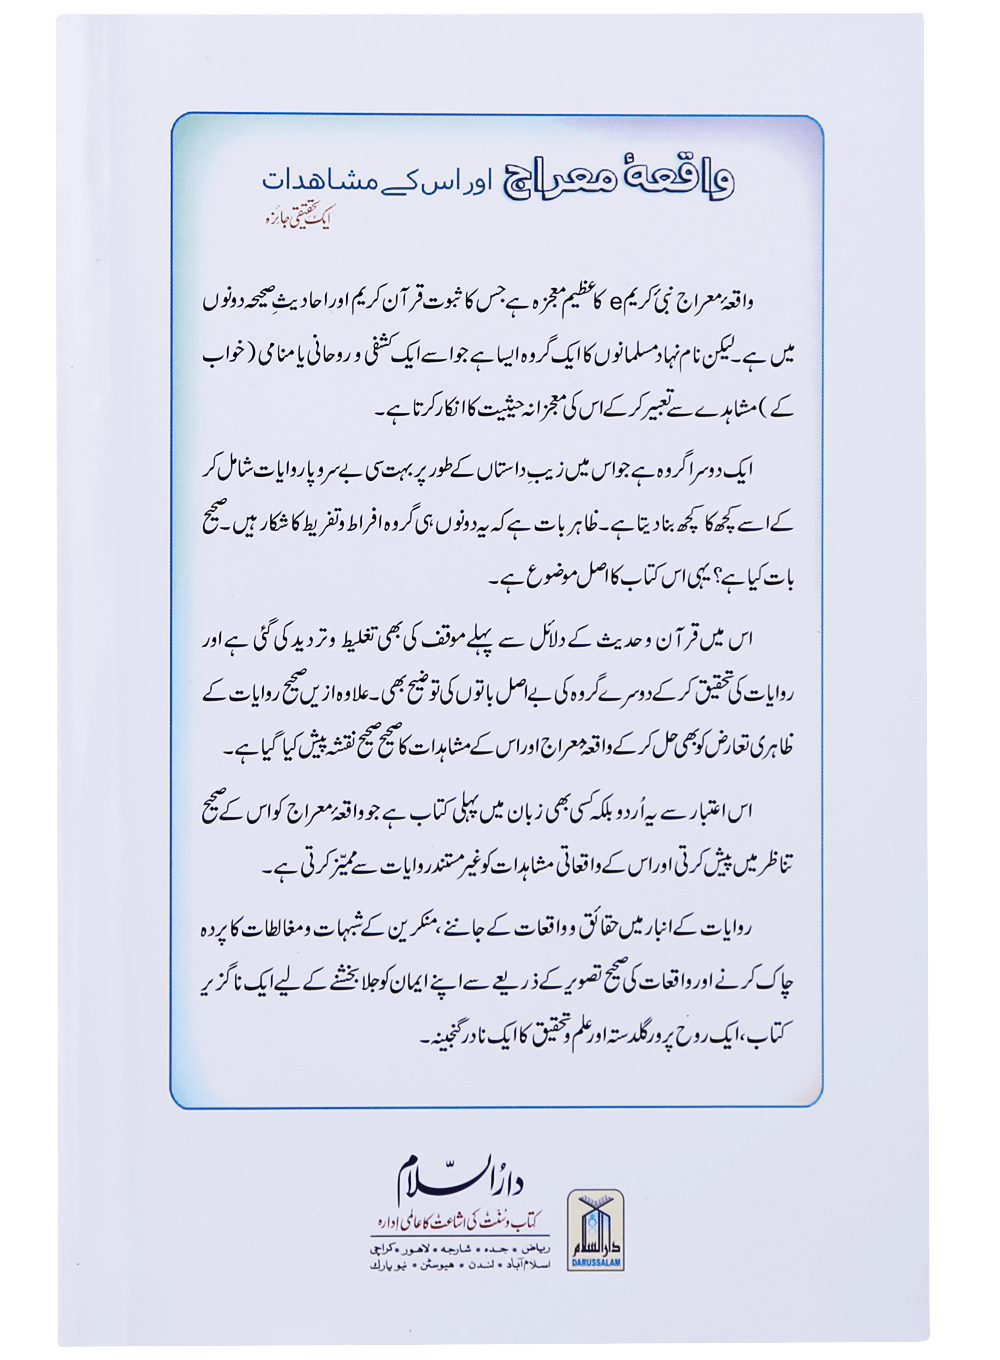 واقعۂ معراج اور اس کے مشاھدات
ایک تحقیقی جائزہ
واقعۂ معراج نبیٔ کریمe کا عظیم معجزہ ہے جس کا ثبوت قرآن کریم اور احادیثِ صحیحہ دونوں
میں ہے۔ لیکن نام نہاد مسلمانوں کا ایک گروہ ایسا ہے جو اسے ایک کشفی و روحانی یا منامی (خواب
کے) مشاہدے سے تعبیر کرکے اس کی معجزانہ حیثیت کا انکار کرتا ہے۔
ایک دوسرا گروہ ہے جو اس میں زیبِ داستاں کے طور پر بہت سی بے سروپا روایات شامل کر
کے اسے کچھ کا کچھ بنا دیتا ہے۔ ظاہر بات ہے کہ یہ دونوں ہی گروہ افراط و تفریط کا شکار ہیں۔ صحیح
بات کیا ہے؟ یہی اس کتاب کا اصل موضوع ہے۔
اس میں قرآن و حدیث کے دلائل سے پہلے موقف کی بھی تغلیط و تردید کی گئی ہے اور
روایات کی تحقیق کرکے دوسرے گروہ کی بے اصل باتوں کی توضیح بھی۔ علاوہ ازیں صحیح روایات کے
ظاہری تعارض کو بھی حل کرکے واقعۂ معراج اور اس کے مشاہدات کا صحیح صحیح نقشہ پیش کیا گیا ہے۔
اس اعتبار سے یہ اُردو بلکہ کسی بھی زبان میں پہلی کتاب ہے جو واقعۂ معراج کو اس کے صحیح
تناظر میں پیش کرتی اور اس کے واقعاتی مشاہدات کو غیر مستند روایات سے ممیّز کرتی ہے۔
روایات کے انبار میں حقائق و واقعات کے جاننے، منکرین کے شبہات و مغالطات کا پردہ
چاک کرنے اور واقعات کی صحیح تصویر کے ذریعے سے اپنے ایمان کو جلا بخشنے کے لیے ایک ناگزیر
کتاب، ایک روح پرور گلدستہ اور علم و تحقیق کا ایک نادر گنجینہ۔
دارُالسّلام
کتاب و سُنّت کی اشاعت کا عالمی اِدارہ
ریاض • جدہ • شارجہ • لاھور • کراچی
اسلام آباد • لندن • ھیوسٹن • نیو یارک
دارالسلام
DARUSSALAM